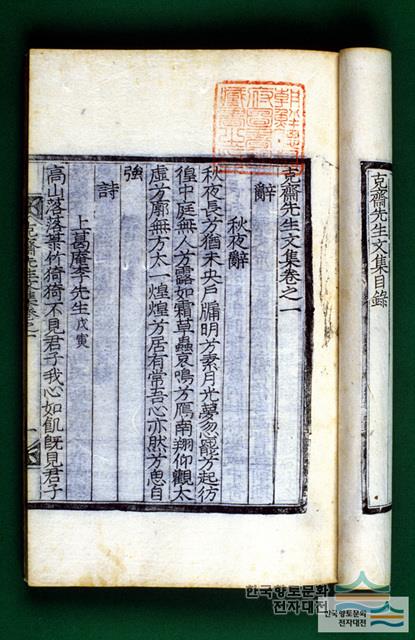 克齋先生文集目錄
克齋先生文集卷之一
辭
秋夜辭
秋夜長兮猶未央戶牖明兮素月光夢忽寤兮起彷
徨中庭無人兮露如霜草蟲哀鳴兮鴈南翔仰觀太
虛兮廓無方太一煌煌兮居有常吾心亦然兮思自
強
詩
上葛庵李先生戊寅
高山落落菉竹猗猗不見君子我心如飢旣見君子
克齋先生文集卷之一
한국향토문화
전자대전
한국향토문화
전자대전